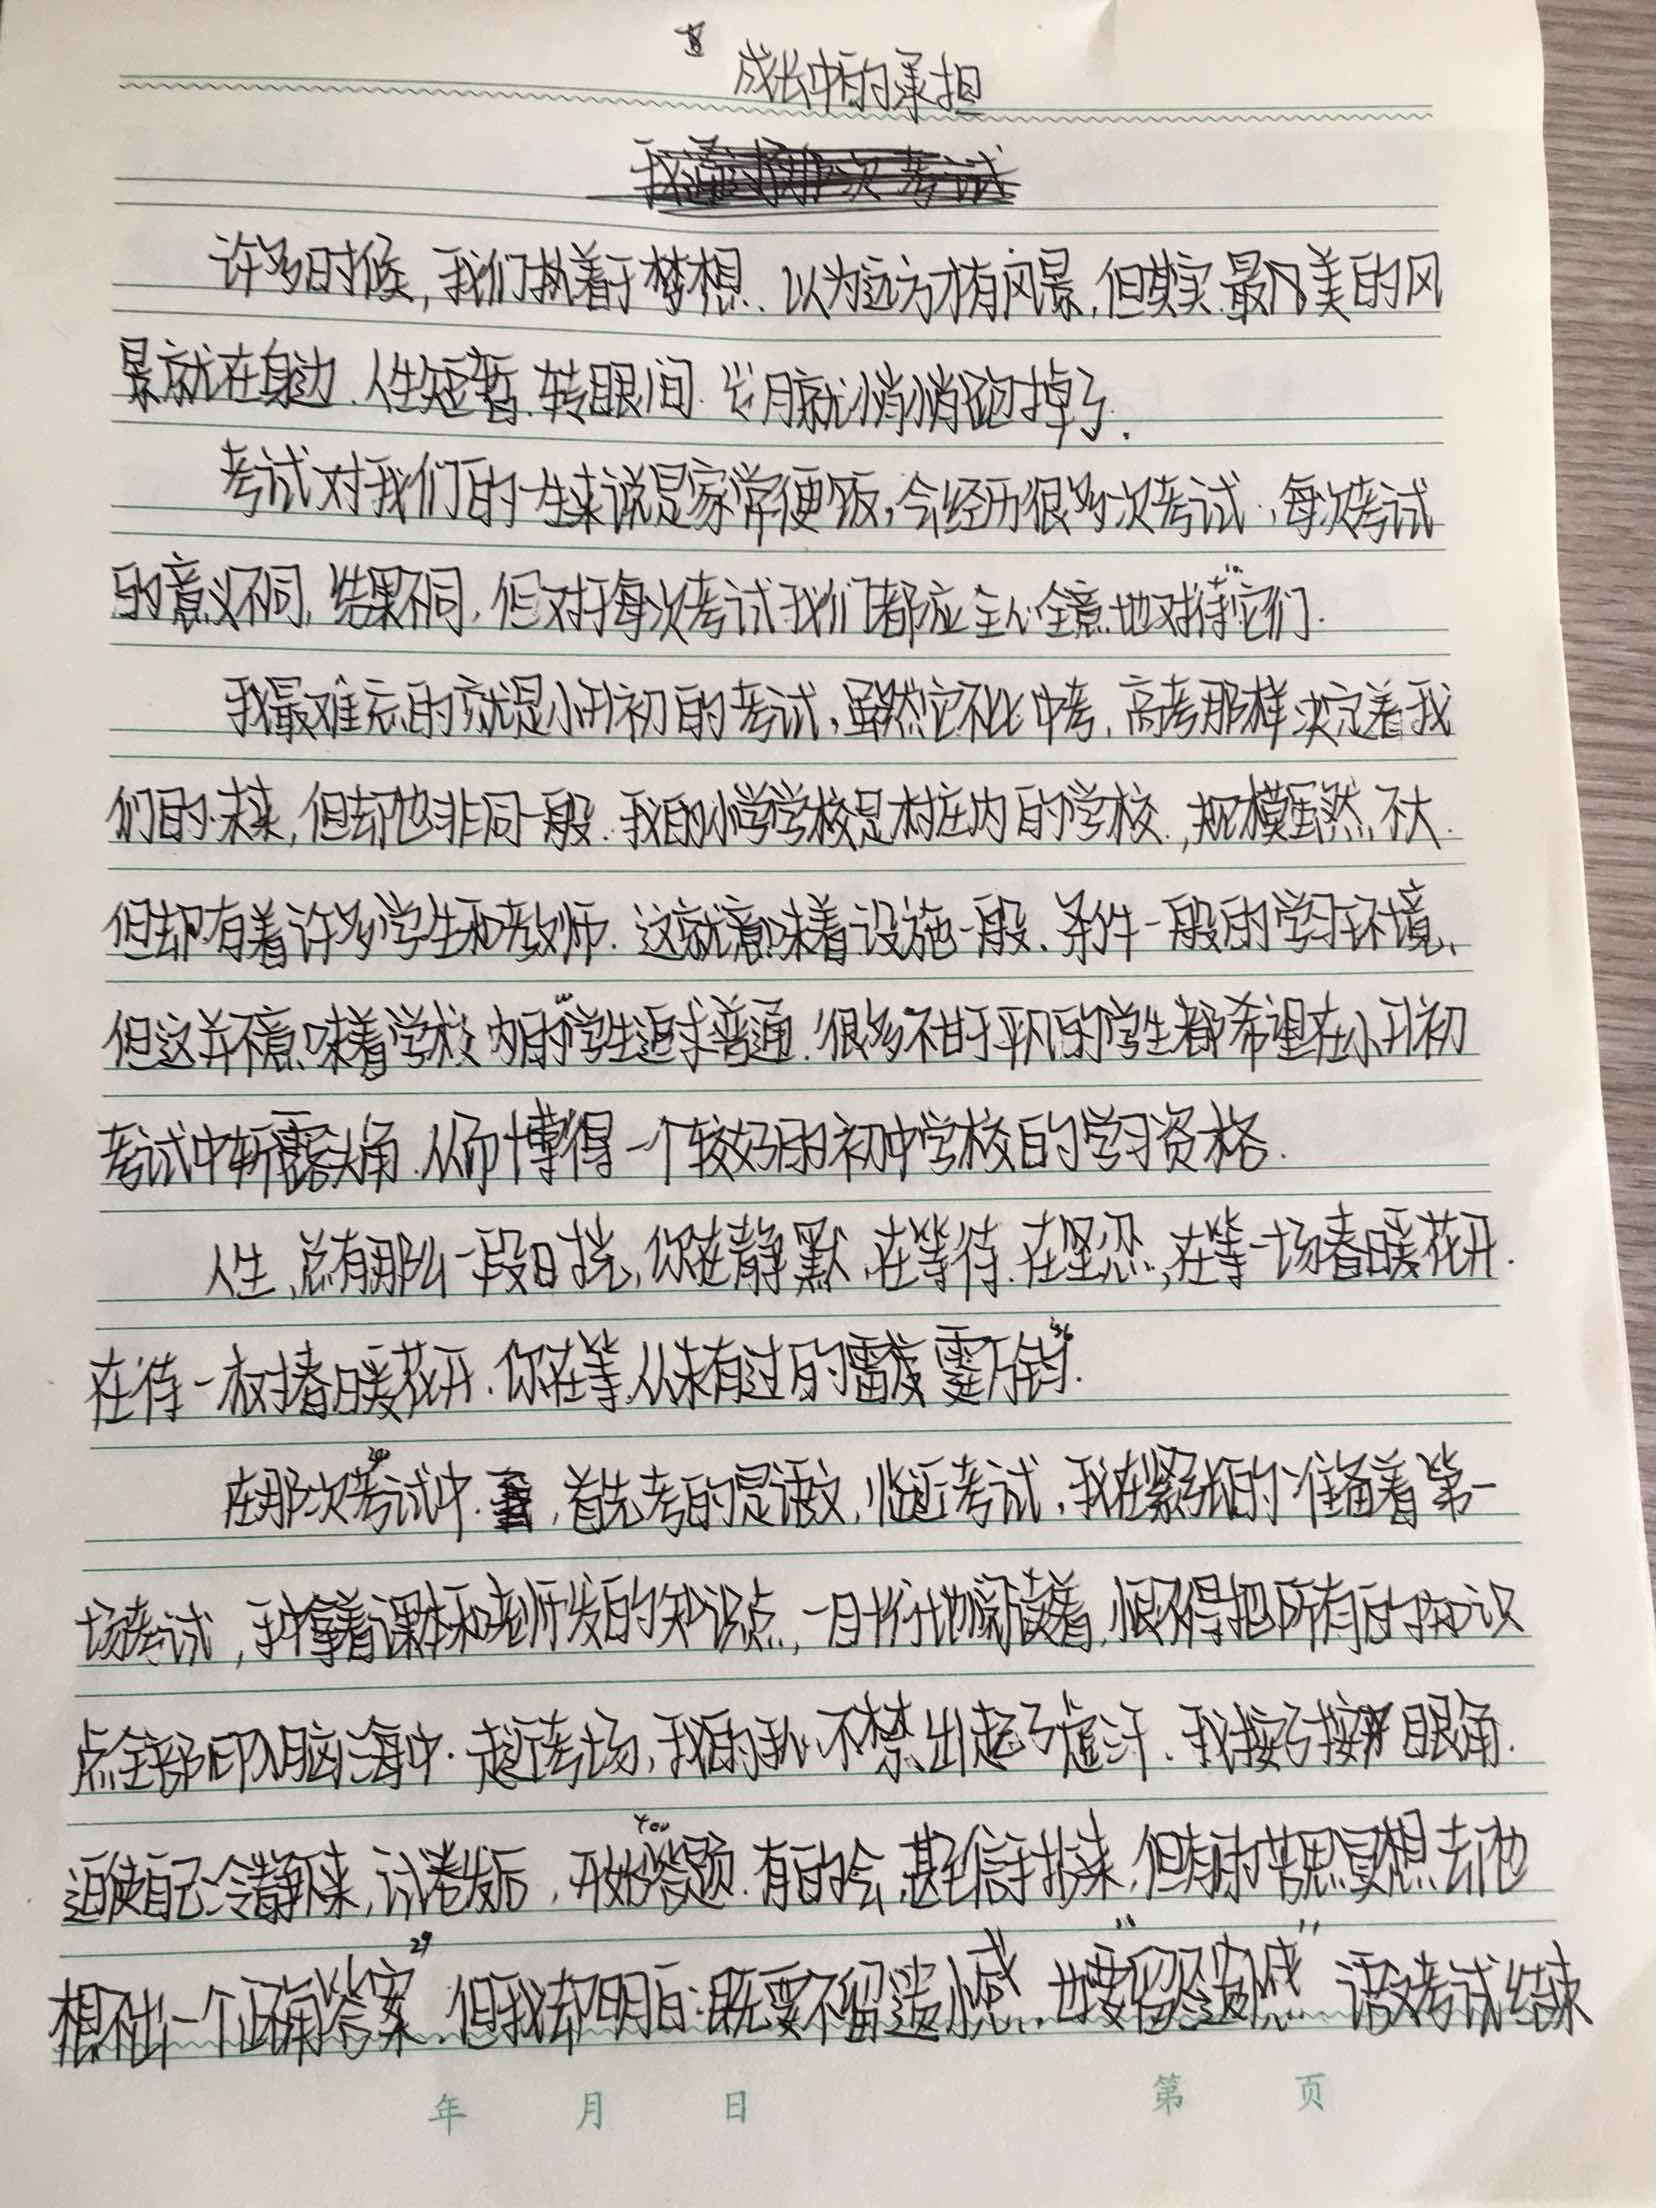 成长中的承担
许多时候,我们执着于梦想.以为远方才有风景,但其实.最美的风
景就在身边.人生短暂.转眼间.岁月就悄悄跑掉了.
考试对我们的一生来说是家常便饭,会经历很多次考试.,每次考试
的意义不同,结果不同,但对于每次考试我们都应全心全意地对待它们.
我最难忘的就是小升初的考试,虽然它不比中考,高考那样决定着我
们的未来,但却也非同一般.我的小学学校是村庄内的学校.,规模虽然不大.
但却有着许多学生和教师.这就意味着设施一般.条件一般的学习环境、
但这并不意味着学校内的学生追求普通.很多不甘于平凡的学生都希望在小升初
考试中崭露头角.从而博得一个较好的初中学校的学习资格.
人生,总有那么一段日光,你在静默、在等待.在坚忍,在等一场春暖花开.
在待一树春暖花开.你在等.从未有过的雷霆万钧.
在那次考试中.,首先考的是语文,临近考试,我在紧张的准备着第一
场考试,手拿着课本和老师发的知识点,一目十行地阅读着,恨不得把所有的知识
点全部印入脑海中.走近考场,我的手心不禁出起了虚汗.我按了按眼角.
迫使自己冷静下来,试卷发后,开始答题.有的会,甚至信手拈来,但有的苦思冥想却也
想不出一个正确答案.但我却明白:既要不留遗憾..也要"留遗憾"语文考试结束
年 月 日 第 页